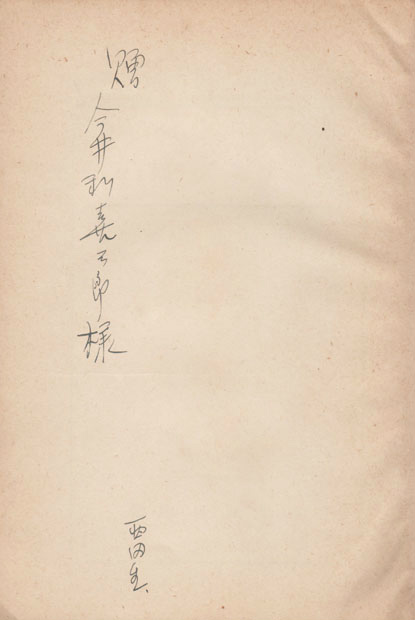 贈
今井利喜三郎様
西田生